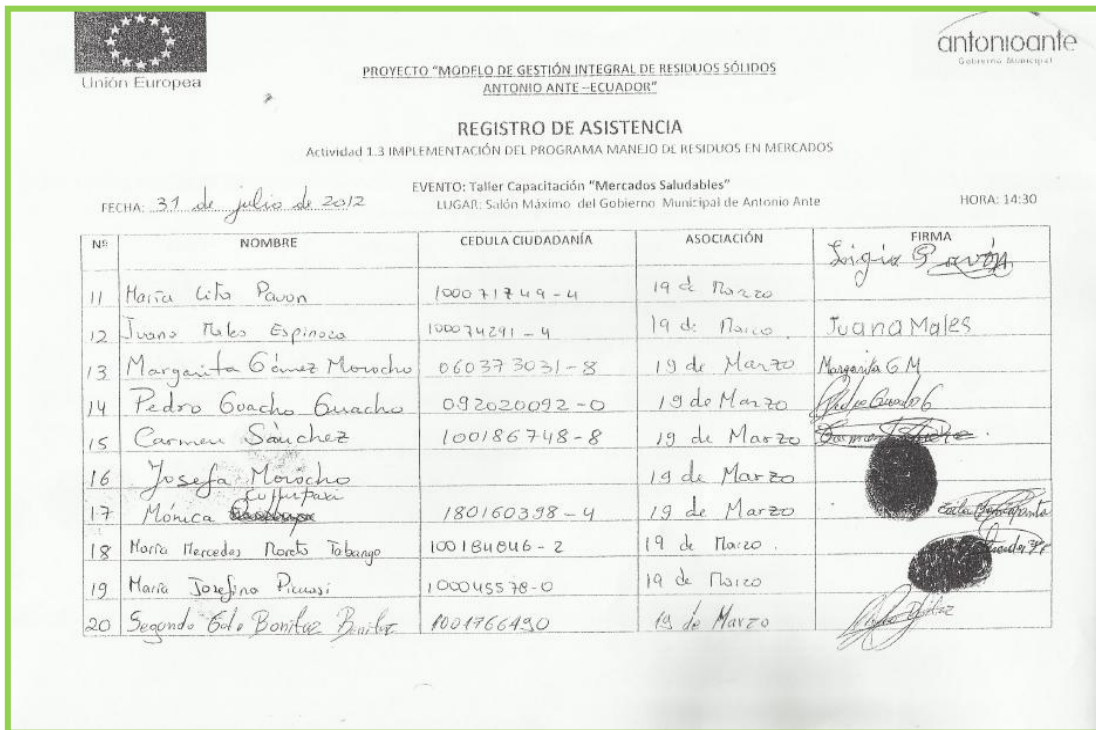 Unión Europea
antonioante
Gobierno Municipal
PROYECTO "MODELO DE GESTIÓN INTEGRAL DE RESIDUOS SÓLIDOS
ANTONIO ANTE –ECUADOR"
REGISTRO DE ASISTENCIA
Actividad 1.3 IMPLEMENTACIÓN DEL PROGRAMA MANEJO DE RESIDUOS EN MERCADOS
EVENTO: Taller Capacitación "Mercados Saludables"
FECHA: 31 de julio de 2012 LUGAR: Salón Máximo del Gobierno Municipal de Antonio Ante HORA: 14:30
Nº NOMBRE CEDULA CIUDADANÍA ASOCIACIÓN FIRMA
11 María Pavon 100071749-4 19 de Marzo Ligia Pavón
12 Juana Males Espinoza 100074291-4 19 de Marzo Juana Males
13 Margarita Gómez Morocho 060373031-8 19 de Marzo Margarita G M
14 Pedro Guacho Guacho 092020092-0 19 de Marzo
15 Carmen Sánchez 100186748-8 19 de Marzo
16 Josefa Morocho 19 de Marzo
17 Mónica 180160398-4 19 de Marzo
18 María Mercedes Tabango 100184846-2 19 de Marzo.
19 María Josefina Picuasi 100045578-0 19 de Marzo
20 Segundo Benitez 1001766490 19 de Marzo